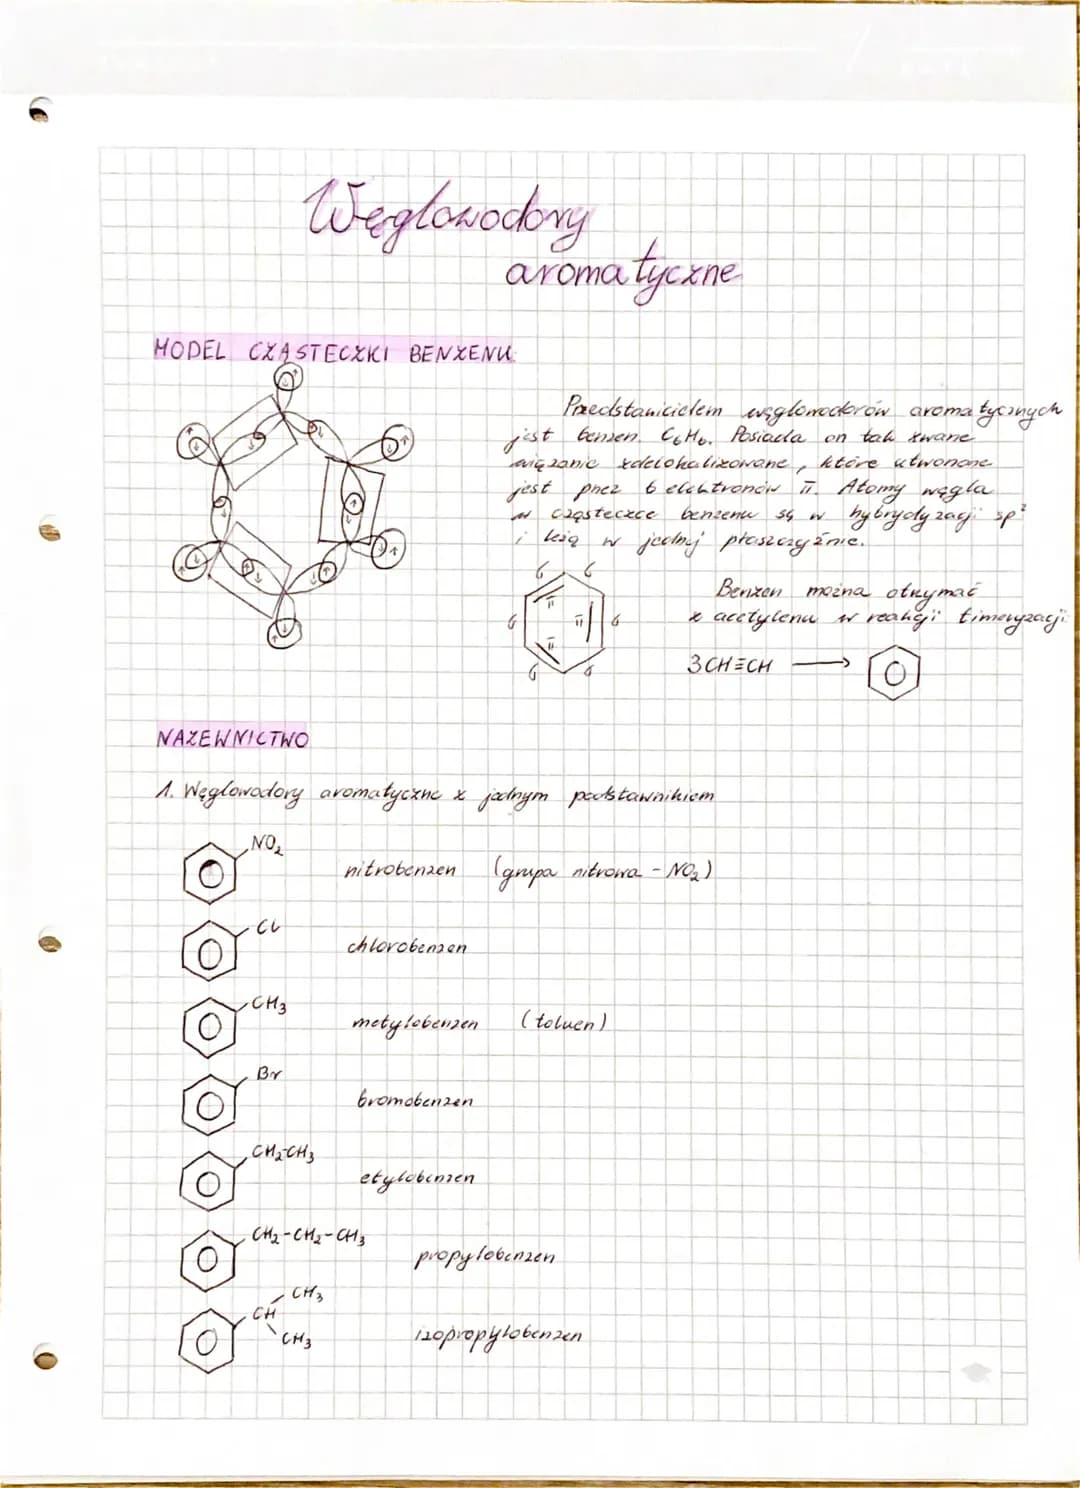 Węglowodory
aromatyczne
MODEL CZĄSTECZKI BENZENU
Przedstawicielem węglowodorów aromatycznych
jest benzen C₆H₆. Posiada on tak zwane
wiązanie zdelokalizowane, które utworzone
jest przez 6 elektronów π. Atomy węgla
w cząsteczce benzenu są w hybrydyzacji sp²
i leżą w jednej płaszczyźnie.
Benzen można otrzymać
z acetylenu w reakcji timeryzacji
3CH≡CH ⟶
NAZEWNICTWO
1. Węglowodory aromatyczne z jednym podstawnikiem
NO₂
nitrobenzen (grupa nitrowa - NO₂)
Cl
chlorobenzen
CH₃
metylobenzen (toluen)
Br
bromobenzen
CH₂-CH₃
etylobenzen
CH₂-CH₂-CH₃
propylobenzen
CH₃
CH
CH₃
izopropylobenzen